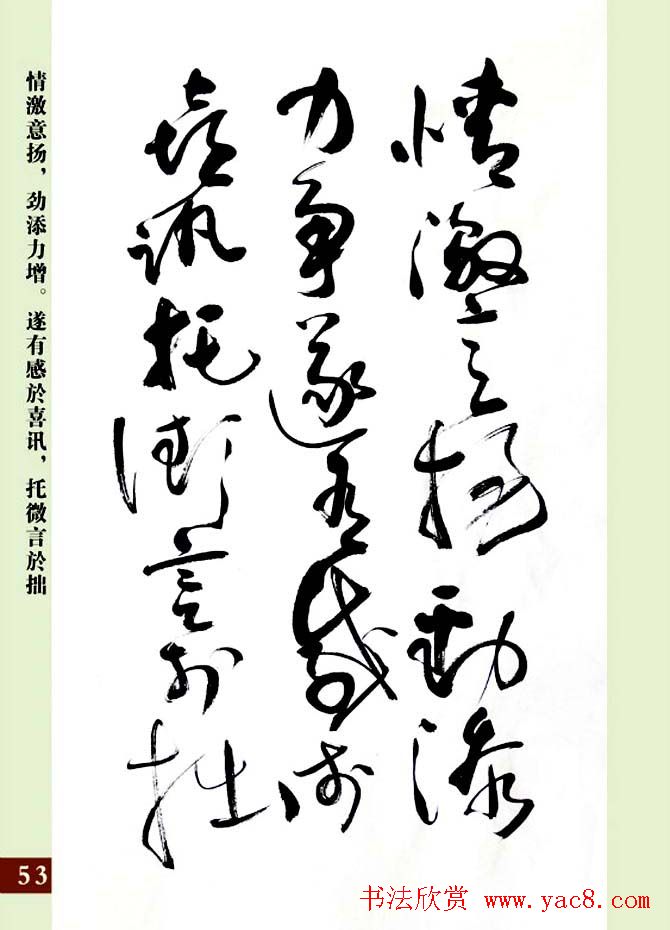 情激意扬劲添
力争遂有感於
喜讯托微言於拙
情激意扬，劲添力增。遂有感於喜讯，托微言於拙
53
书法欣赏 www.yac8.com